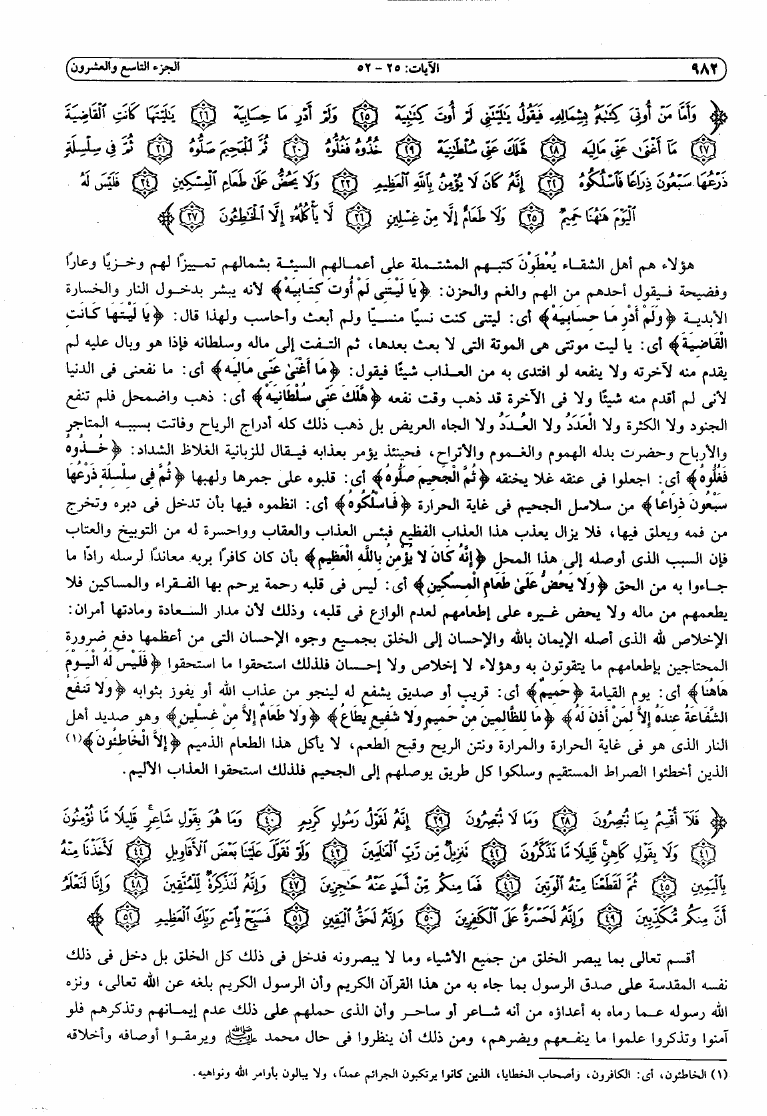 ٩٨٢ الآيات: ٢٥ - ٥٢ الجزء التاسع والعشرون
﴿ وَأَمَّا مَنْ أُوتِيَ كِتَٰبَهُۥ بِشِمَالِهِۦ فَيَقُولُ يَٰلَيْتَنِي لَمْ أُوتَ كِتَٰبِيَهْ ٢٥ وَلَمْ أَدْرِ مَا حِسَابِيَهْ ٢٦ يَٰلَيْتَهَا كَانَتِ ٱلْقَاضِيَةَ
٢٧ مَآ أَغْنَىٰ عَنِّي مَالِيَهْ ٢٨ هَلَكَ عَنِّي سُلْطَٰنِيَهْ ٢٩ خُذُوهُ فَغُلُّوهُ ٣٠ ثُمَّ ٱلْجَحِيمَ صَلُّوهُ ٣١ ثُمَّ فِي سِلْسِلَةٍ
ذَرْعُهَا سَبْعُونَ ذِرَاعًا فَٱسْلُكُوهُ ٣٢ إِنَّهُۥ كَانَ لَا يُؤْمِنُ بِٱللَّهِ ٱلْعَظِيمِ ٣٣ وَلَا يَحُضُّ عَلَىٰ طَعَامِ ٱلْمِسْكِينِ ٣٤ فَلَيْسَ لَهُ
ٱلْيَوْمَ هَٰهُنَا حَمِيمٌ ٣٥ وَلَا طَعَامٌ إِلَّا مِنْ غِسْلِينٍ ٣٦ لَّا يَأْكُلُهُۥٓ إِلَّا ٱلْخَٰطِـُٔونَ ٣٧ ﴾
هؤلاء هم أهل الشقاء يُعْطَوْنَ كتبهم المشتملة على أعمالهم السيئة بشمالهم تمييزًا لهم وخزيًا وعارًا
وفضيحة فيقول أحدهم من الهم والغم والحزن: ﴿يَا لَيْتَنِي لَمْ أُوتَ كِتَابِيَهْ﴾ لأنه يبشر بدخول النار والخسارة
الأبدية ﴿وَلَمْ أَدْرِ مَا حِسَابِيَهْ﴾ أى: ليتنى كنت نسيًا منسيًا ولم أبعث وأحاسب ولهذا قال: ﴿يَا لَيْتَهَا كَانَتِ
الْقَاضِيَةَ﴾ أى: يا ليت موتتى هى الموتة التى لا بعث بعدها، ثم التفت إلى ماله وسلطانه فإذا هو وبال عليه لم
يقدم منه لآخرته ولا ينفعه لو افتدى به من العذاب شيئًا فيقول: ﴿مَا أَغْنَىٰ عَنِّي مَالِيَهْ﴾ أى: ما نفعنى فى الدنيا
لأنى لم أقدم منه شيئًا ولا فى الآخرة قد ذهب وقت نفعه ﴿هَلَكَ عَنِّي سُلْطَانِيَهْ﴾ أى: ذهب واضمحل فلم تنفع
الجنود ولا الكثرة ولا الْعَدَدُ ولا الْعُدَدُ ولا الجاه العريض بل ذهب ذلك كله أدراج الرياح وفاتت بسببه المتاجر
والأرباح وحضرت بدله الهموم والغموم والأتراح، فحينئذ يؤمر بعذابه فيقال للزبانية الغلاظ الشداد: ﴿خُذُوهُ
فَغُلُّوهُ﴾ أى: اجعلوا فى عنقه غلا يخنقه ﴿ثُمَّ الْجَحِيمَ صَلُّوهُ﴾ أى: قلبوه على جمرها ولهبها ﴿ثُمَّ فِي سِلْسِلَةٍ ذَرْعُهَا
سَبْعُونَ ذِرَاعًا﴾ من سلاسل الجحيم فى غاية الحرارة ﴿فَاسْلُكُوهُ﴾ أى: انظموه فيها بأن تدخل فى دبره وتخرج
من فمه ويعلق فيها، فلا يزال يعذب هذا العذاب الفظيع فبئس العذاب والعقاب وواحسرة له من التوبيخ والعتاب
فإن السبب الذى أوصله إلى هذا المحل ﴿إِنَّهُ كَانَ لا يُؤْمِنُ بِاللَّهِ الْعَظِيمِ﴾ بأن كان كافرًا بربه معاندًا لرسله رادًا ما
جاءوا به من الحق ﴿وَلا يَحُضُّ عَلَىٰ طَعَامِ الْمِسْكِينِ﴾ أى: ليس فى قلبه رحمة يرحم بها الفقراء والمساكين فلا
يطعمهم من ماله ولا يحض غيره على إطعامهم لعدم الوازع فى قلبه، وذلك لأن مدار السعادة ومادتها أمران:
الإخلاص لله الذى أصله الإيمان بالله والإحسان إلى الخلق بجميع وجوه الإحسان التى من أعظمها دفع ضرورة
المحتاجين بإطعامهم ما يتقوتون به وهؤلاء لا إخلاص ولا إحسان فلذلك استحقوا ما استحقوا ﴿فَلَيْسَ لَهُ الْيَوْمَ
هَاهُنَا﴾ أى: يوم القيامة ﴿حَمِيمٌ﴾ أى: قريب أو صديق يشفع له لينجو من عذاب الله أو يفوز بثوابه ﴿وَلا تَنفَعُ
الشَّفَاعَةُ عِندَهُ إِلاَّ لِمَنْ أَذِنَ لَهُ﴾ ﴿مَا لِلظَّالِمِينَ مِنْ حَمِيمٍ وَلا شَفِيعٍ يُطَاعُ﴾ ﴿وَلا طَعَامٌ إِلاَّ مِنْ غِسْلِينٍ﴾ وهو صديد أهل
النار الذى هو فى غاية الحرارة والمرارة ونتن الريح وقبح الطعم، لا يأكل هذا الطعام الذميم ﴿إِلاَّ الْخَاطِئُونَ﴾(١)
الذين أخطئوا الصراط المستقيم وسلكوا كل طريق يوصلهم إلى الجحيم فلذلك استحقوا العذاب الأليم.
﴿ فَلَآ أُقْسِمُ بِمَا تُبْصِرُونَ ٣٨ وَمَا لَا تُبْصِرُونَ ٣٩ إِنَّهُۥ لَقَوْلُ رَسُولٍ كَرِيمٍ ٤٠ وَمَا هُوَ بِقَوْلِ شَاعِرٍ قَلِيلًا مَّا تُؤْمِنُونَ
٤١ وَلَا بِقَوْلِ كَاهِنٍ قَلِيلًا مَّا تَذَكَّرُونَ ٤٢ تَنزِيلٌ مِّن رَّبِّ ٱلْعَٰلَمِينَ ٤٣ وَلَوْ تَقَوَّلَ عَلَيْنَا بَعْضَ ٱلْأَقَاوِيلِ ٤٤ لَأَخَذْنَا مِنْهُ
بِٱلْيَمِينِ ٤٥ ثُمَّ لَقَطَعْنَا مِنْهُ ٱلْوَتِينَ ٤٦ فَمَا مِنكُم مِّنْ أَحَدٍ عَنْهُ حَٰجِزِينَ ٤٧ وَإِنَّهُۥ لَتَذْكِرَةٌ لِّلْمُتَّقِينَ ٤٨ وَإِنَّا لَنَعْلَمُ
أَنَّ مِنكُم مُّكَذِّبِينَ ٤٩ وَإِنَّهُۥ لَحَسْرَةٌ عَلَى ٱلْكَٰفِرِينَ ٥٠ وَإِنَّهُۥ لَحَقُّ ٱلْيَقِينِ ٥١ فَسَبِّحْ بِٱسْمِ رَبِّكَ ٱلْعَظِيمِ ٥٢ ﴾
أقسم تعالى بما يبصر الخلق من جميع الأشياء وما لا يبصرونه فدخل فى ذلك كل الخلق بل دخل فى ذلك
نفسه المقدسة على صدق الرسول بما جاء به من هذا القرآن الكريم وأن الرسول الكريم بلغه عن الله تعالى، ونزه
الله رسوله عما رماه به أعداؤه من أنه شاعر أو ساحر وأن الذى حملهم على ذلك عدم إيمانهم وتذكرهم فلو
آمنوا وتذكروا علموا ما ينفعهم ويضرهم، ومن ذلك أن ينظروا فى حال محمد ﷺ ويرمقوا أوصافه وأخلاقه
(١) الخاطئون، أى: الكافرون، وأصحاب الخطايا، الذين كانوا يرتكبون الجرائم عمدًا، ولا يبالون بأوامر الله ونواهيه.